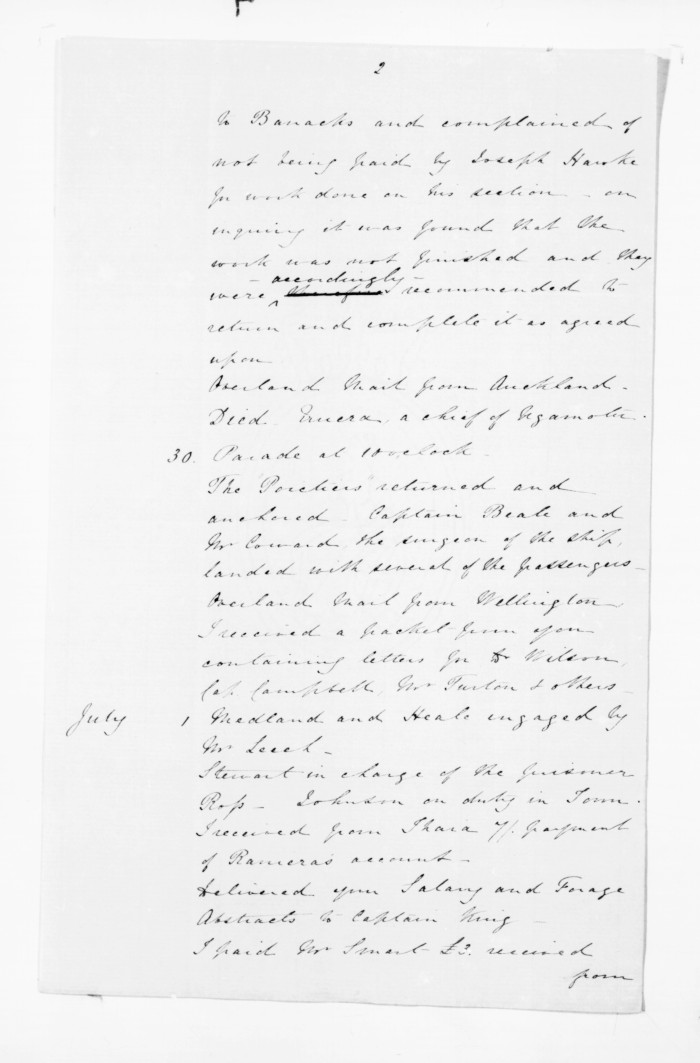 2
to Barracks and complained of
not being paid by Joseph Hawke
for work done on his section - on
inquiry it was found that the
work was not finished and they
- accordingly -
were therefore recommended to
return and complete it as agreed
upon
Overland Mail from Auckland -
Died. Eruera, a chief of Ngamotu -
30. Parade at 10 o'clock -
The Porcliers returned and
anchored - Captain Beale and
Mr Coward, the surgeon of the ship,
landed with several of the passengers -
Overland Mail from Wellington -
I received a packet from you
containing letters for Dr Wilson,
Cap. Campbell, Mr Turton & others -
July 1 Medland and Heale engaged by
Mr Leech -
Stewart in charge of the prisoner
Ross - Johnson on duty in Town -
I received from Ihaia 7/. payment
of Ramera's account -
Delivered your Salary and Forage
Abstracts to Captain King -
I paid Mr Smart £3. received
from